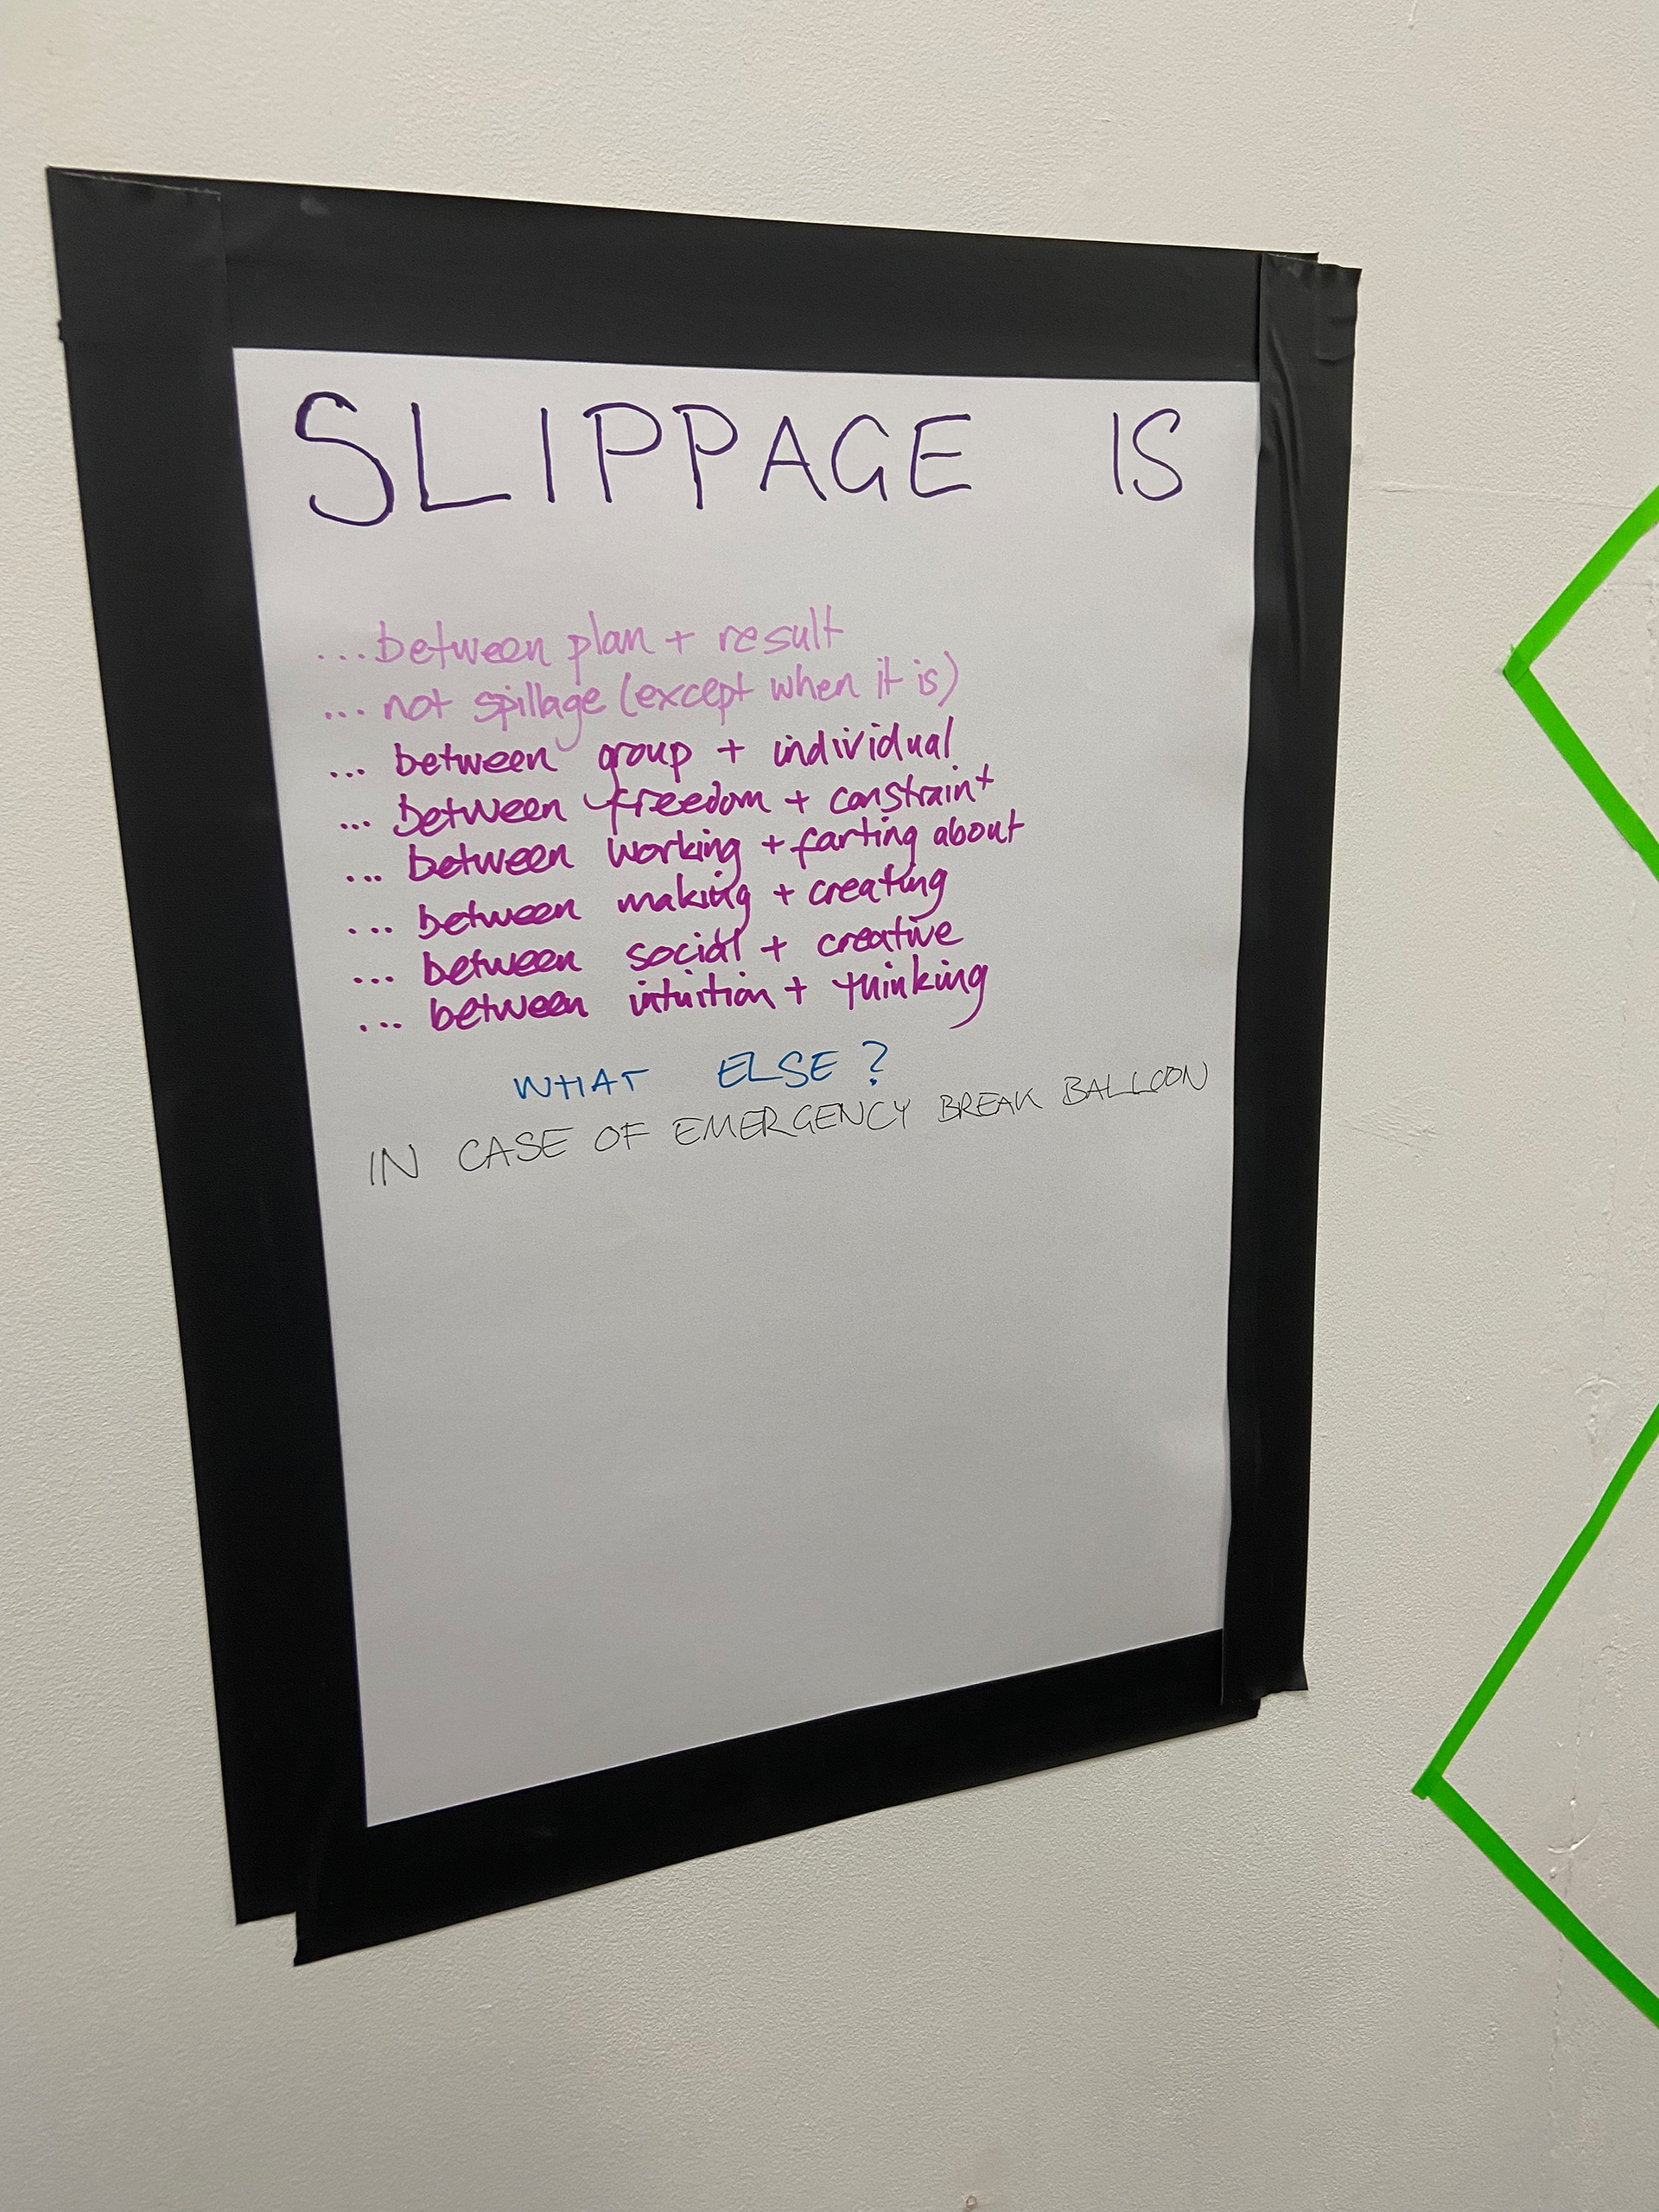 SLIPPAGE IS
...between plan + result
... not spillage (except when it is)
... between group + individual
... between freedom + constraint
... between working + farting about
... between making + creating
... between social + creative
... between intuition + thinking
WHAT ELSE?
IN CASE OF EMERGENCY BREAK BALLOON